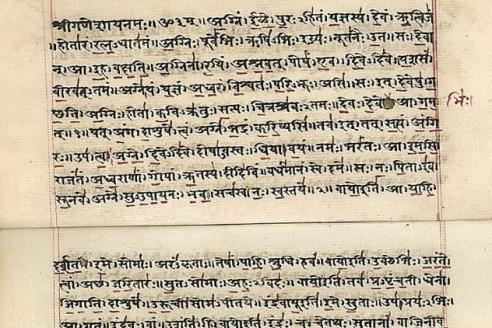 श्रीगणेशायनमः॥ॐ३म्॥अग्निं।ईळे।पुरःऽहितं।यज्ञस्य।देवं।ऋत्विजं
।होतारं।रत्नऽधातमं॥अग्निः।पूर्वेभिः।ऋषिऽभिः।ईड्यः।नूतनैः।उत॥सः।देवा
न्।आ।इह।वक्षति॥अग्निना।रयिं।अश्नवत्।पोषं।एव।दिवेऽदिवे॥यशसं।
वीरवत्ऽतमं॥अग्ने।यं।यज्ञं।अध्वरं।विश्वतः।परिऽभूः।असि॥सः।इत्।देवेषु।ग
छति॥अग्निः।होता।कविऽक्रतुः।सत्यः।चित्रश्रवःऽतमः॥देवः।देवे।आ।गम
भिः।
त्॥१॥यत्।अंग।दाशुषे।त्वं।अग्ने।भद्रं।करिष्यसि॥तव।इत्।तत्।सत्यं।अंगि
रः॥उप।त्वा।अग्ने।दिवेऽदिवे।दोषाऽवस्तः।धिया।वयं॥नमः।भरंतः।आ।इमसि॥
राजंतं।अध्वराणां।गोपां।ऋतस्य।दीदिविं॥वर्धमानं।स्वे।दमे॥सः।नः।पिताऽइव।
सूनवे।अग्ने।सुऽउपायनः।भव॥सचस्व।नः।स्वस्तये॥२॥वायोइति।आ।याहि।
दर्शत।इमे।सोमाः।अरंऽकृताः॥तेषां।पाहि।श्रुधि।हवं॥वायोइति।उक्थेभिः।जरंते
त्वां।अच्छ।जरितारः॥सुतऽसोमाः।अहःऽविदः॥वायोइति।तव।प्रऽपृंचती।धेना।
जिगाति।दाशुषे॥उरूची।सोमऽपीतये॥इंद्रवायूइति।इमे।सुताः॥उप।प्रयःऽभिः।
आ।गतं॥इंदवः।वां।उशंति।हि॥वायोइति।इंद्रः।च।चेतथः।सुतानां।वाजिनीव